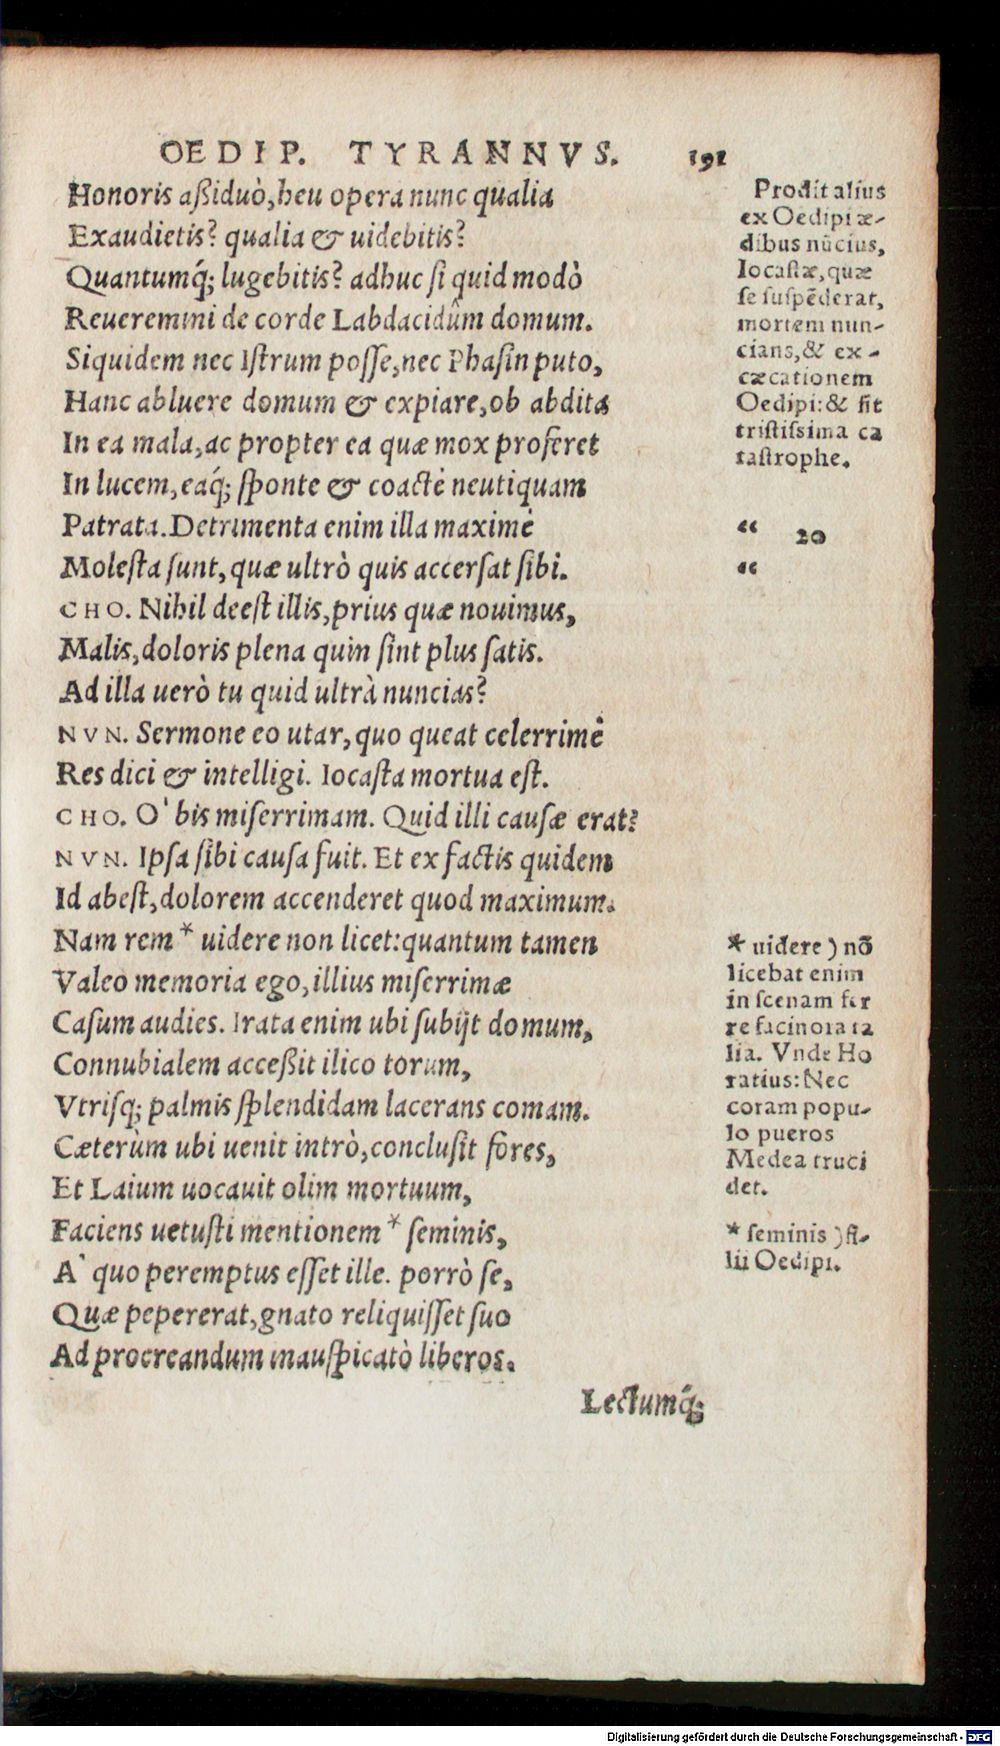 OEDIP. TYRANNVS. 191
Honoris aßiduò, heu opera nunc qualia
Exaudietis? qualia & uidebitis?
Quantumq́; lugebitis? adhuc si quid modò
Reueremini de corde Labdacidûm domum.
Siquidem nec Istrum posse, nec Phasin puto,
Hanc abluere domum & expiare, ob abdita
In ea mala, ac propter ea quæ mox proferet
In lucem, eaq́; sponte & coactè neutiquam
Patrata. Detrimenta enim illa maximè
Molesta sunt, quæ ultrò quis accersat sibi.
CHO. Nihil deest illis, prius quæ nouimus,
Malis, doloris plena quin sint plus satis.
Ad illa uerò tu quid ultrà nuncias?
NVN. Sermone eo utar, quo queat celerrimè
Res dici & intelligi. Iocasta mortua est.
CHO. O' bis miserrimam. Quid illi causæ erat?
NVN. Ipsa sibi causa fuit. Et ex factis quidem
Id abest, dolorem accenderet quod maximum.
Nam rem * uidere non licet: quantum tamen
Valeo memoria ego, illius miserrimæ
Casum audies. Irata enim ubi subijt domum,
Connubialem acceßit ilico torum,
Vtrisq; palmis splendidam lacerans comam.
Cæterùm ubi uenit intrò, conclusit fores,
Et Laium uocauit olim mortuum,
Faciens uetusti mentionem * seminis,
A` quo peremptus esset ille. porrò se,
Quæ pepererat, gnato reliquisset suo
Ad procreandum inauspicatò liberos.
Lectumq́;
Prodit alius
ex Oedipi æ-
dibus nũcius,
Iocastæ, quæ
se suspẽderat,
mortem nun-
cians, & ex-
cæcationem
Oedipi: & fit
tristissima ca
tastrophe.
“ 20
“
* uidere ) nõ
licebat enim
in scenam fer
re facinora ta
lia. Vnde Ho
ratius: Nec
coram popu-
lo pueros
Medea truci
det.
* seminis ) fi-
lii Oedipi.
Digitalisierung gefördert durch die Deutsche Forschungsgemeinschaft - DFG